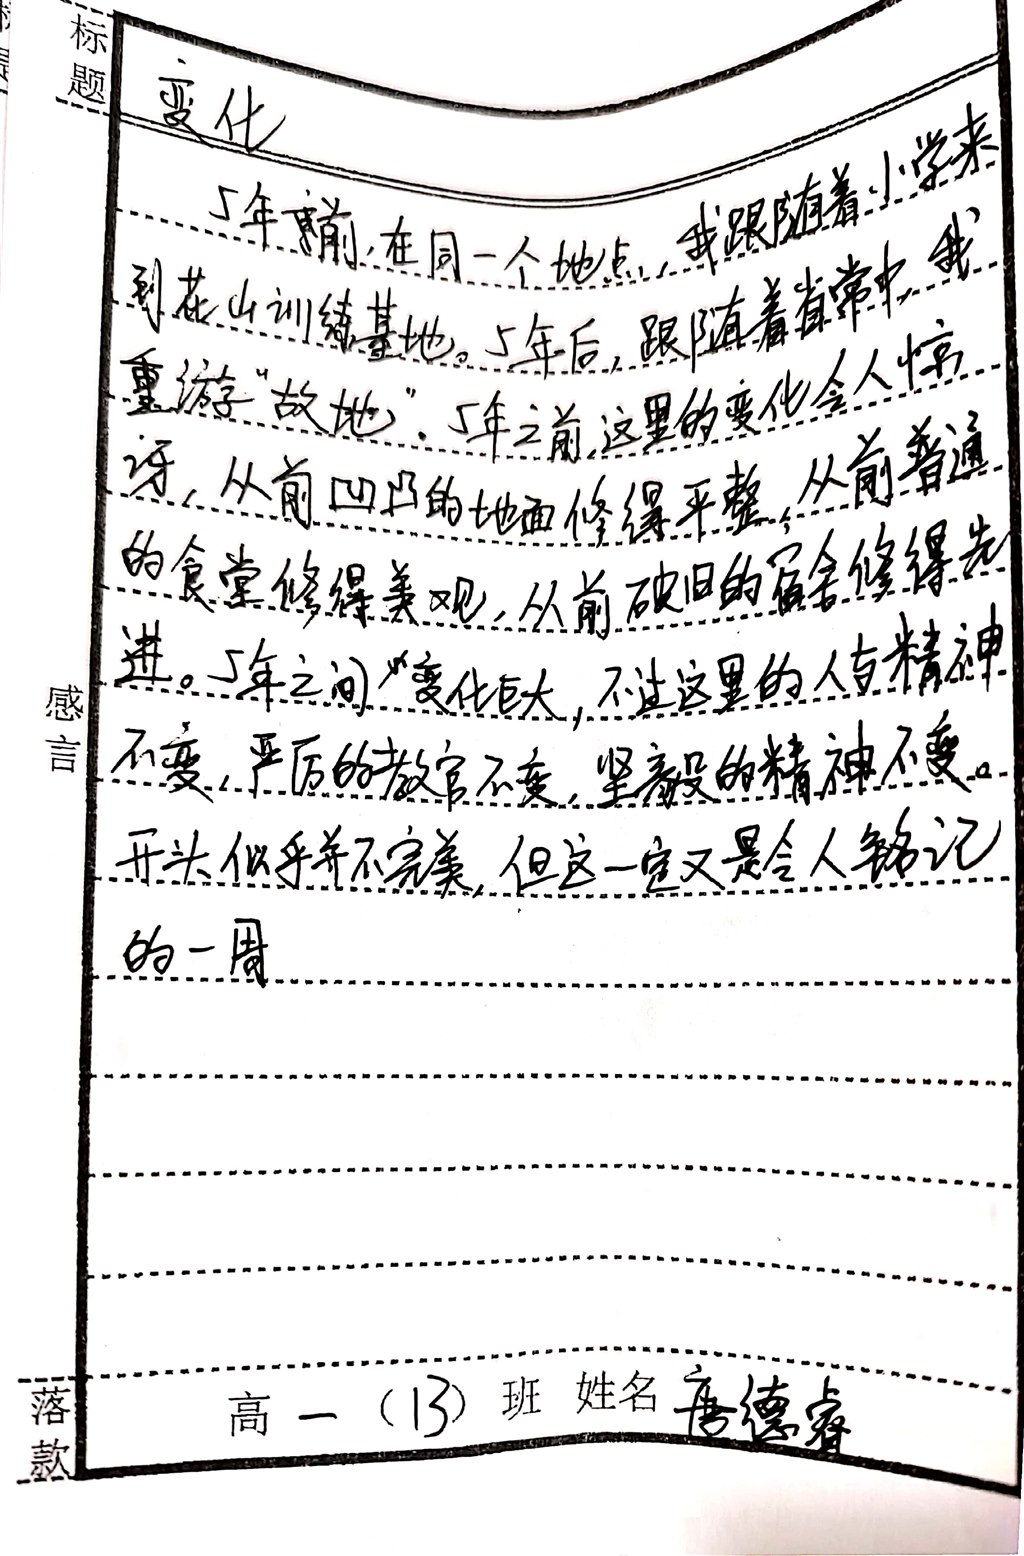 标题
变化
5年前,在同一个地点,我跟随着小学来
到花山训练基地。5年后,跟随着省常中,我
重游"故地"。5年之前,这里的变化令人惊
讶,从前凹凸的地面修得平整,从前普通
的食堂修得美观,从前破旧的宿舍修得先
进。5年之间变化巨大,不过这里的人与精神
不变,严厉的教官不变,坚毅的精神不变。
开头似乎并不完美,但这一定又是令人铭记
的一周
感言
落款
高一(13)班 姓名 唐德睿